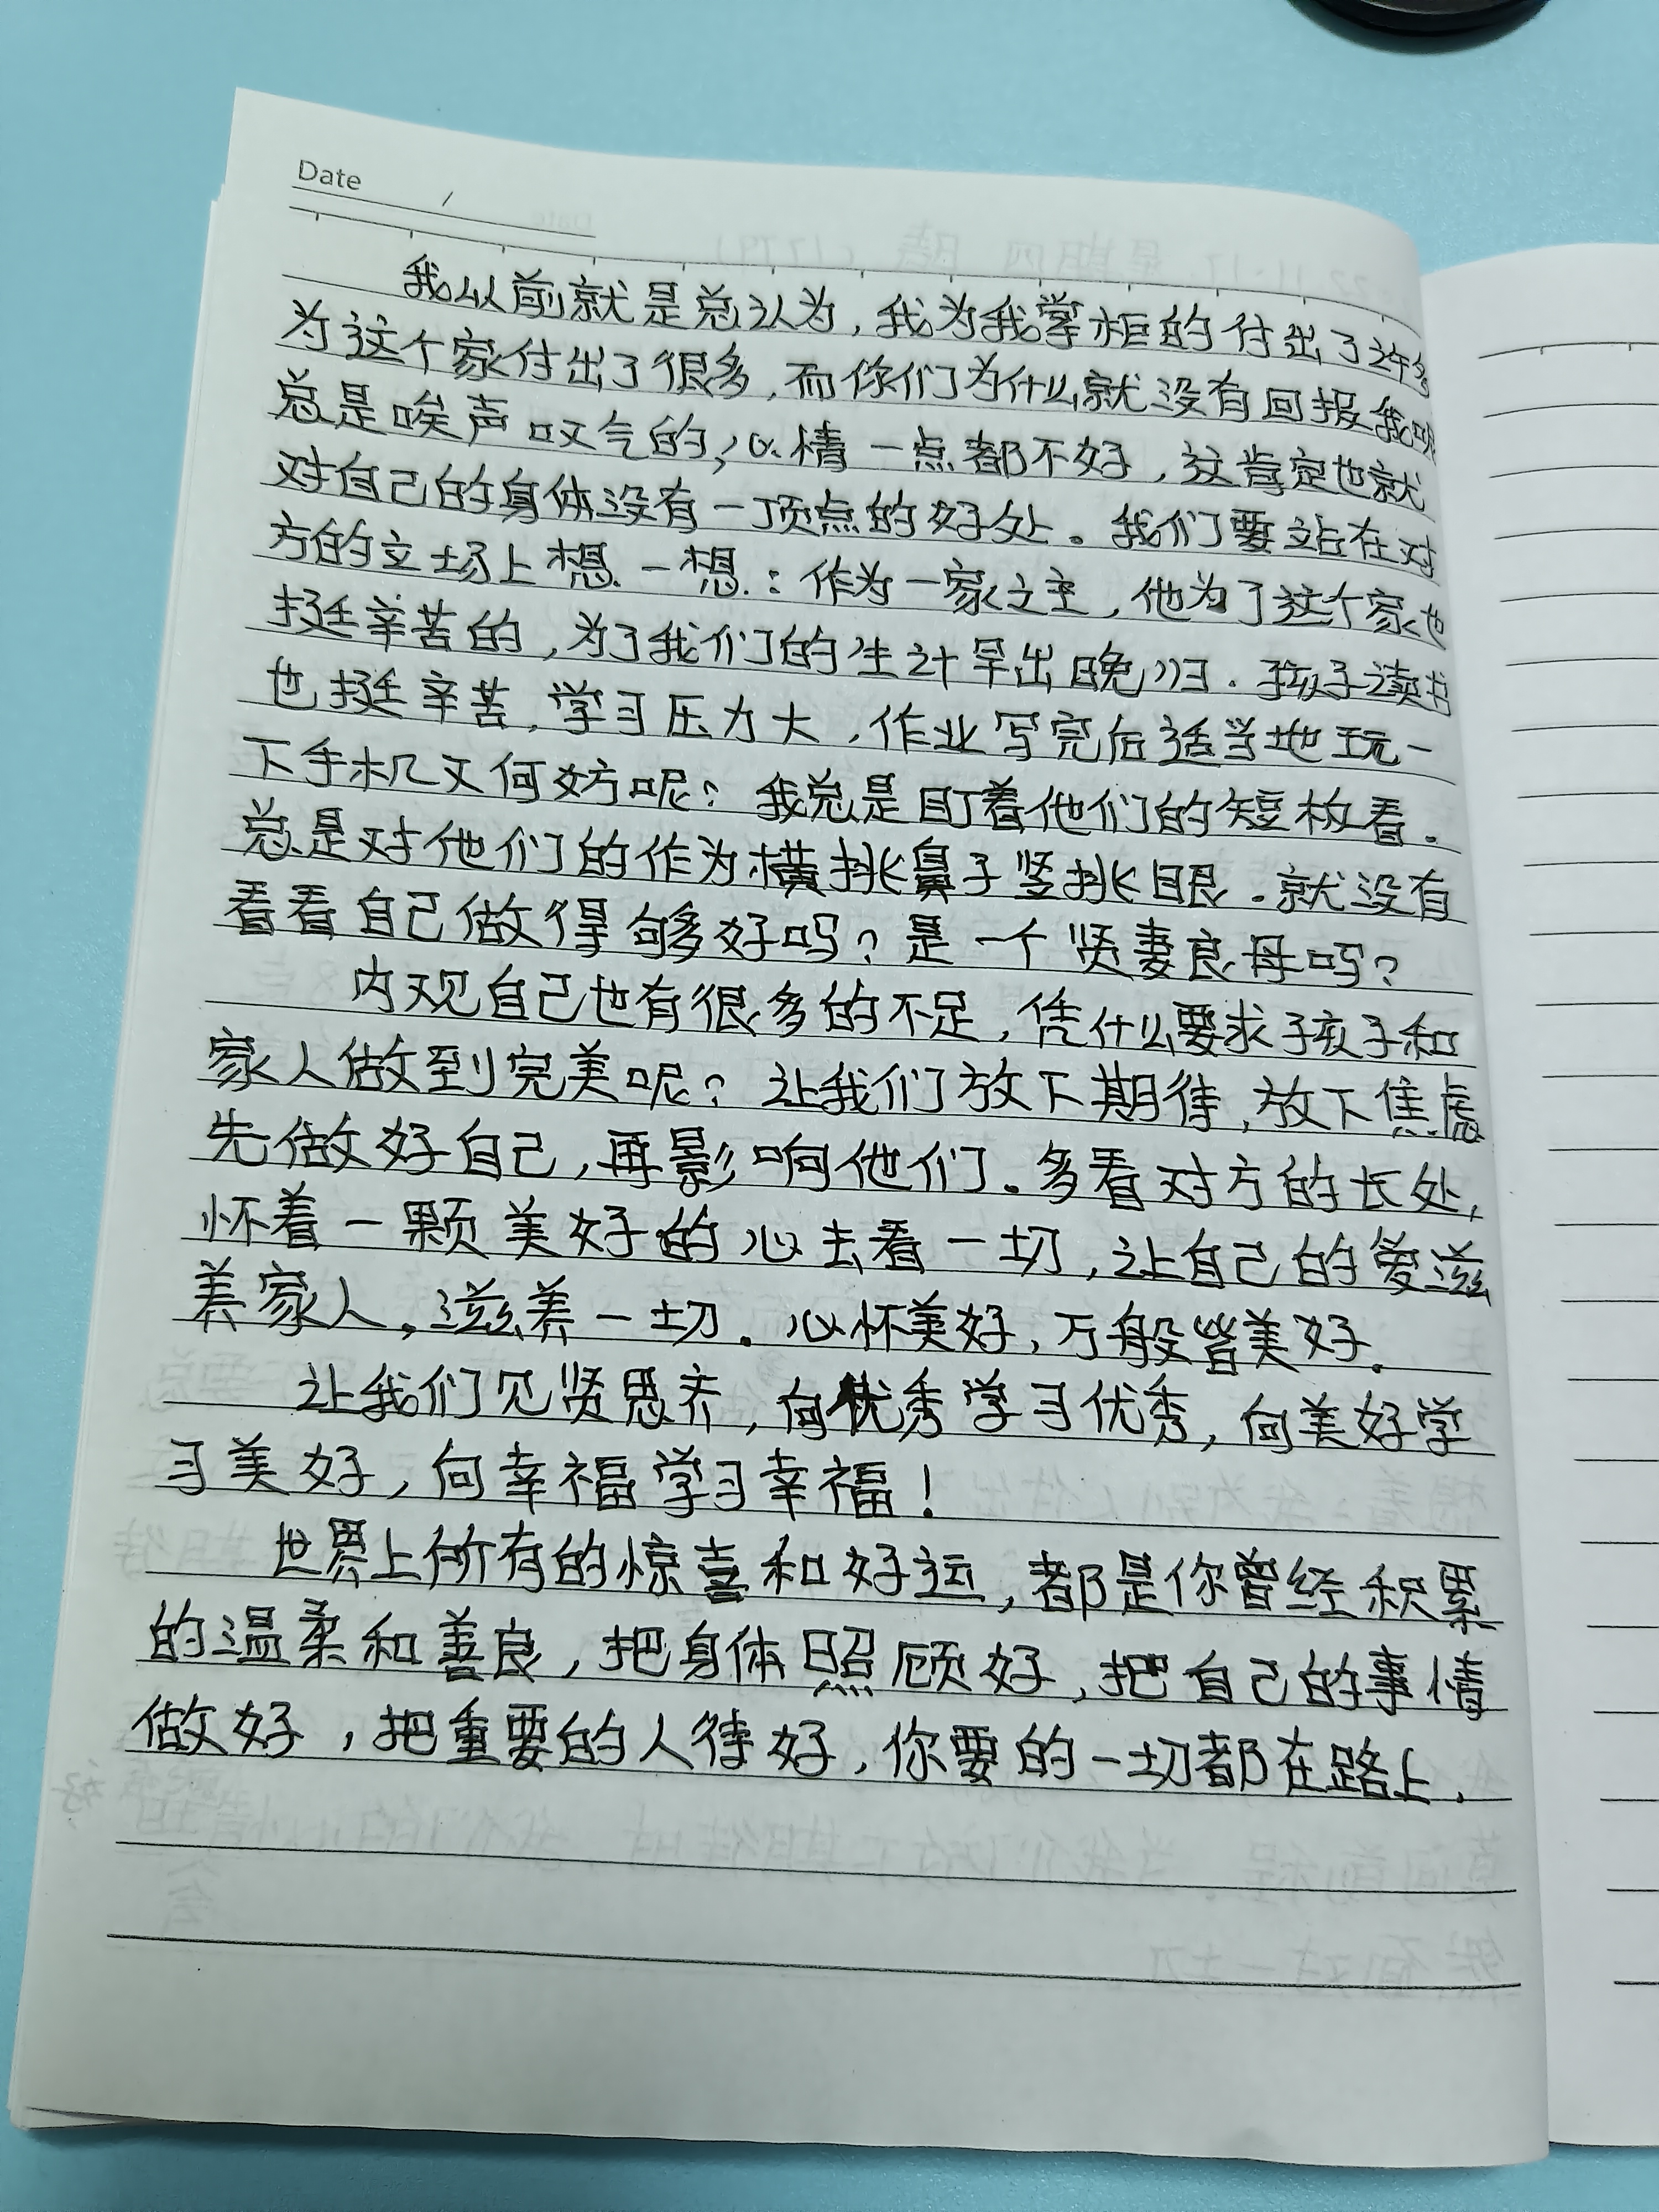 Date /
我以前就是总认为,我为我掌柜的付出了许多
为这个家付出了很多,而你们为什么就没有回报我呢
总是唉声叹气的,心情一点都不好,这肯定也就
对自己的身体没有一顶点的好处。我们要站在对
方的立场上想一想:作为一家之主,他为了这个家也
挺辛苦的,为了我们的生计早出晚归.孩子读书
也挺辛苦,学习压力大,作业写完后适当地玩一
下手机又何妨呢?我总是盯着他们的短板看.
总是对他们的作为横挑鼻子竖挑眼.就没有
看看自己做得够多好吗?是一个贤妻良母吗?
内观自己也有很多的不足,凭什么要求孩子和
家人做到完美呢?让我们放下期待,放下焦虑
先做好自己,再影响他们.多看对方的长处,
怀着一颗美好的心去看一切,让自己的爱滋
养家人。滋养一切.心怀美好,万般皆美好.
让我们见贤思齐,向优秀学习优秀,向美好学
习美好,向幸福学习幸福!
世界上所有的惊喜和好运,都是你曾经积累
的温柔和善良,把身体照顾好,把自己的事情
做好,把重要的人待好,你要的一切都在路上.